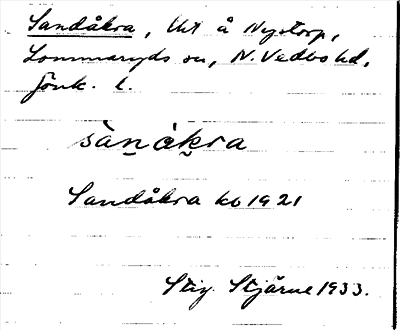 Sandåkra, Ut å Nystorp,
Lommaryds sn, N. Vedbo hd,
Jönk. l.
sànåkra
Sandåkra kb 1921
Stig Stjärne 1933.